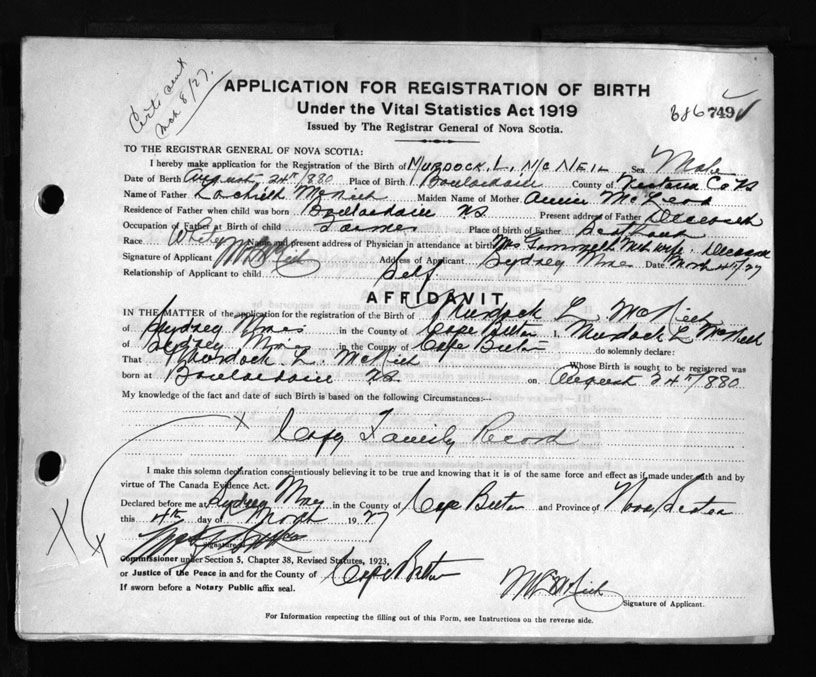 Certi sent
Mch 8/27.
APPLICATION FOR REGISTRATION OF BIRTH
Under the Vital Statistics Act 1919
Issued by The Registrar General of Nova Scotia.
386 749
TO THE REGISTRAR GENERAL OF NOVA SCOTIA:
I hereby make application for the Registration of the Birth of MURDOCK. L. MCNEIL Sex Male
Date of Birth August 24th 1880 Place of Birth Boulardarie County of Victoria Co NS
Name of Father McNeil Maiden Name of Mother Annie McLeod
Residence of Father when child was born Boulardarie NS. Present address of Father Deceased
Occupation of Father at Birth of child Farmer Place of birth of Father Scotland
Race. White Name and present address of Physician in attendance at birth Mrs Midwife. Deceased
Signature of Applicant Address of Applicant Sydney Mines Date March 4th/27
Relationship of Applicant to child Self.
AFFIDAVIT
IN THE MATTER of the application for the registration of the Birth of Murdock L. McNeil
of Sydney Mines in the County of Cape Breton I, Murdock L McNeil
of Sydney Mines in the County of Cape Breton do solemnly declare:
That Murdock L. McNeil Whose Birth is sought to be registered was
born at Boulardarie NS. on August 24th 1880
My knowledge of the fact and date of such Birth is based on the following Circumstances:--
Copy Family Record
I make this solemn declaration conscientiously believing it to be true and knowing that it is of the same force and effect as if made under oath and by
virtue of The Canada Evidence Act.
Declared before me at Sydney Mines in the County of Cape Breton and Province of Nova Scotia
this 4th day of March 1927
Signature of
Commissioner under Section 5, Chapter 38, Revised Statutes, 1923,
or Justice of the Peace in and for the County of Cape Breton
If sworn before a Notary Public affix seal.
Signature of Applicant.
For Information respecting the filling out of this Form, see Instructions on the reverse side.